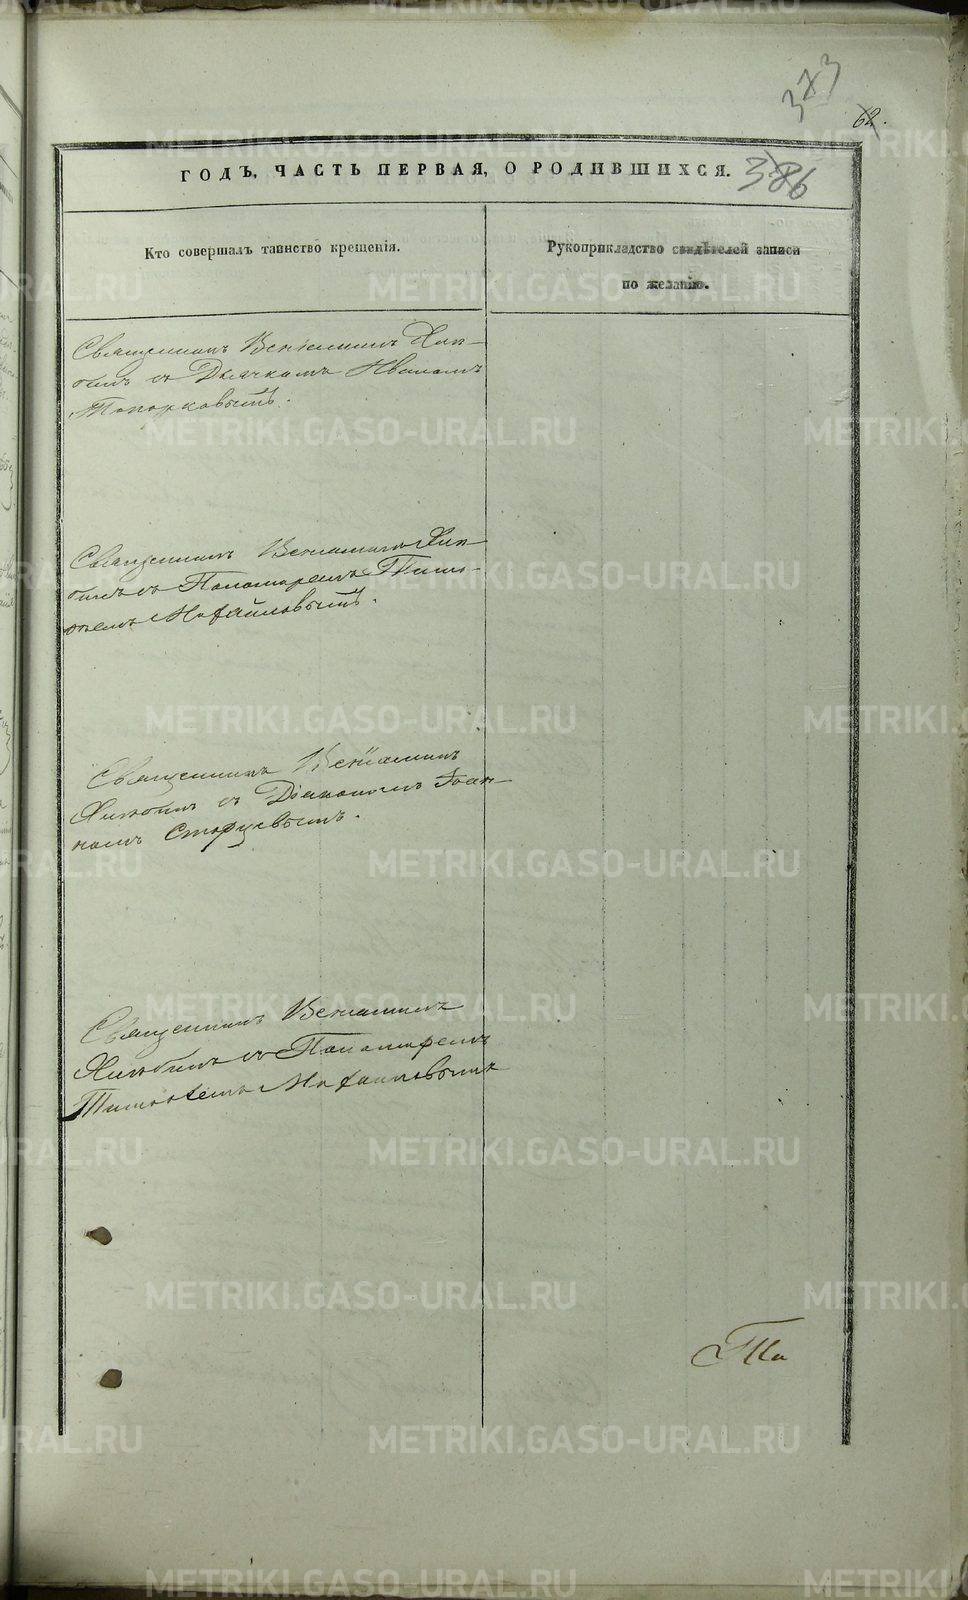 373
62.
ГОДЪ, ЧАСТЬ ПЕРВАЯ, О РОДИВШИХСЯ.
386
Кто совершалъ таинство крещенія.
Рукоприкладство свидѣтелей записи
по желанію.
Священникъ Веніаминъ
съ Дьячкомъ Иваномъ
Топорковымъ.
Священникъ Веніаминъ
съ Пономаремъ Тимо-
ѳеемъ Михайловымъ.
Священникъ Веніаминъ
съ Діакономъ Іоан-
номъ Старцевымъ.
Священникъ Веніаминъ
съ Пономаремъ
Тимоѳеемъ Михайловымъ
METRIKI.GASO-URAL.RU